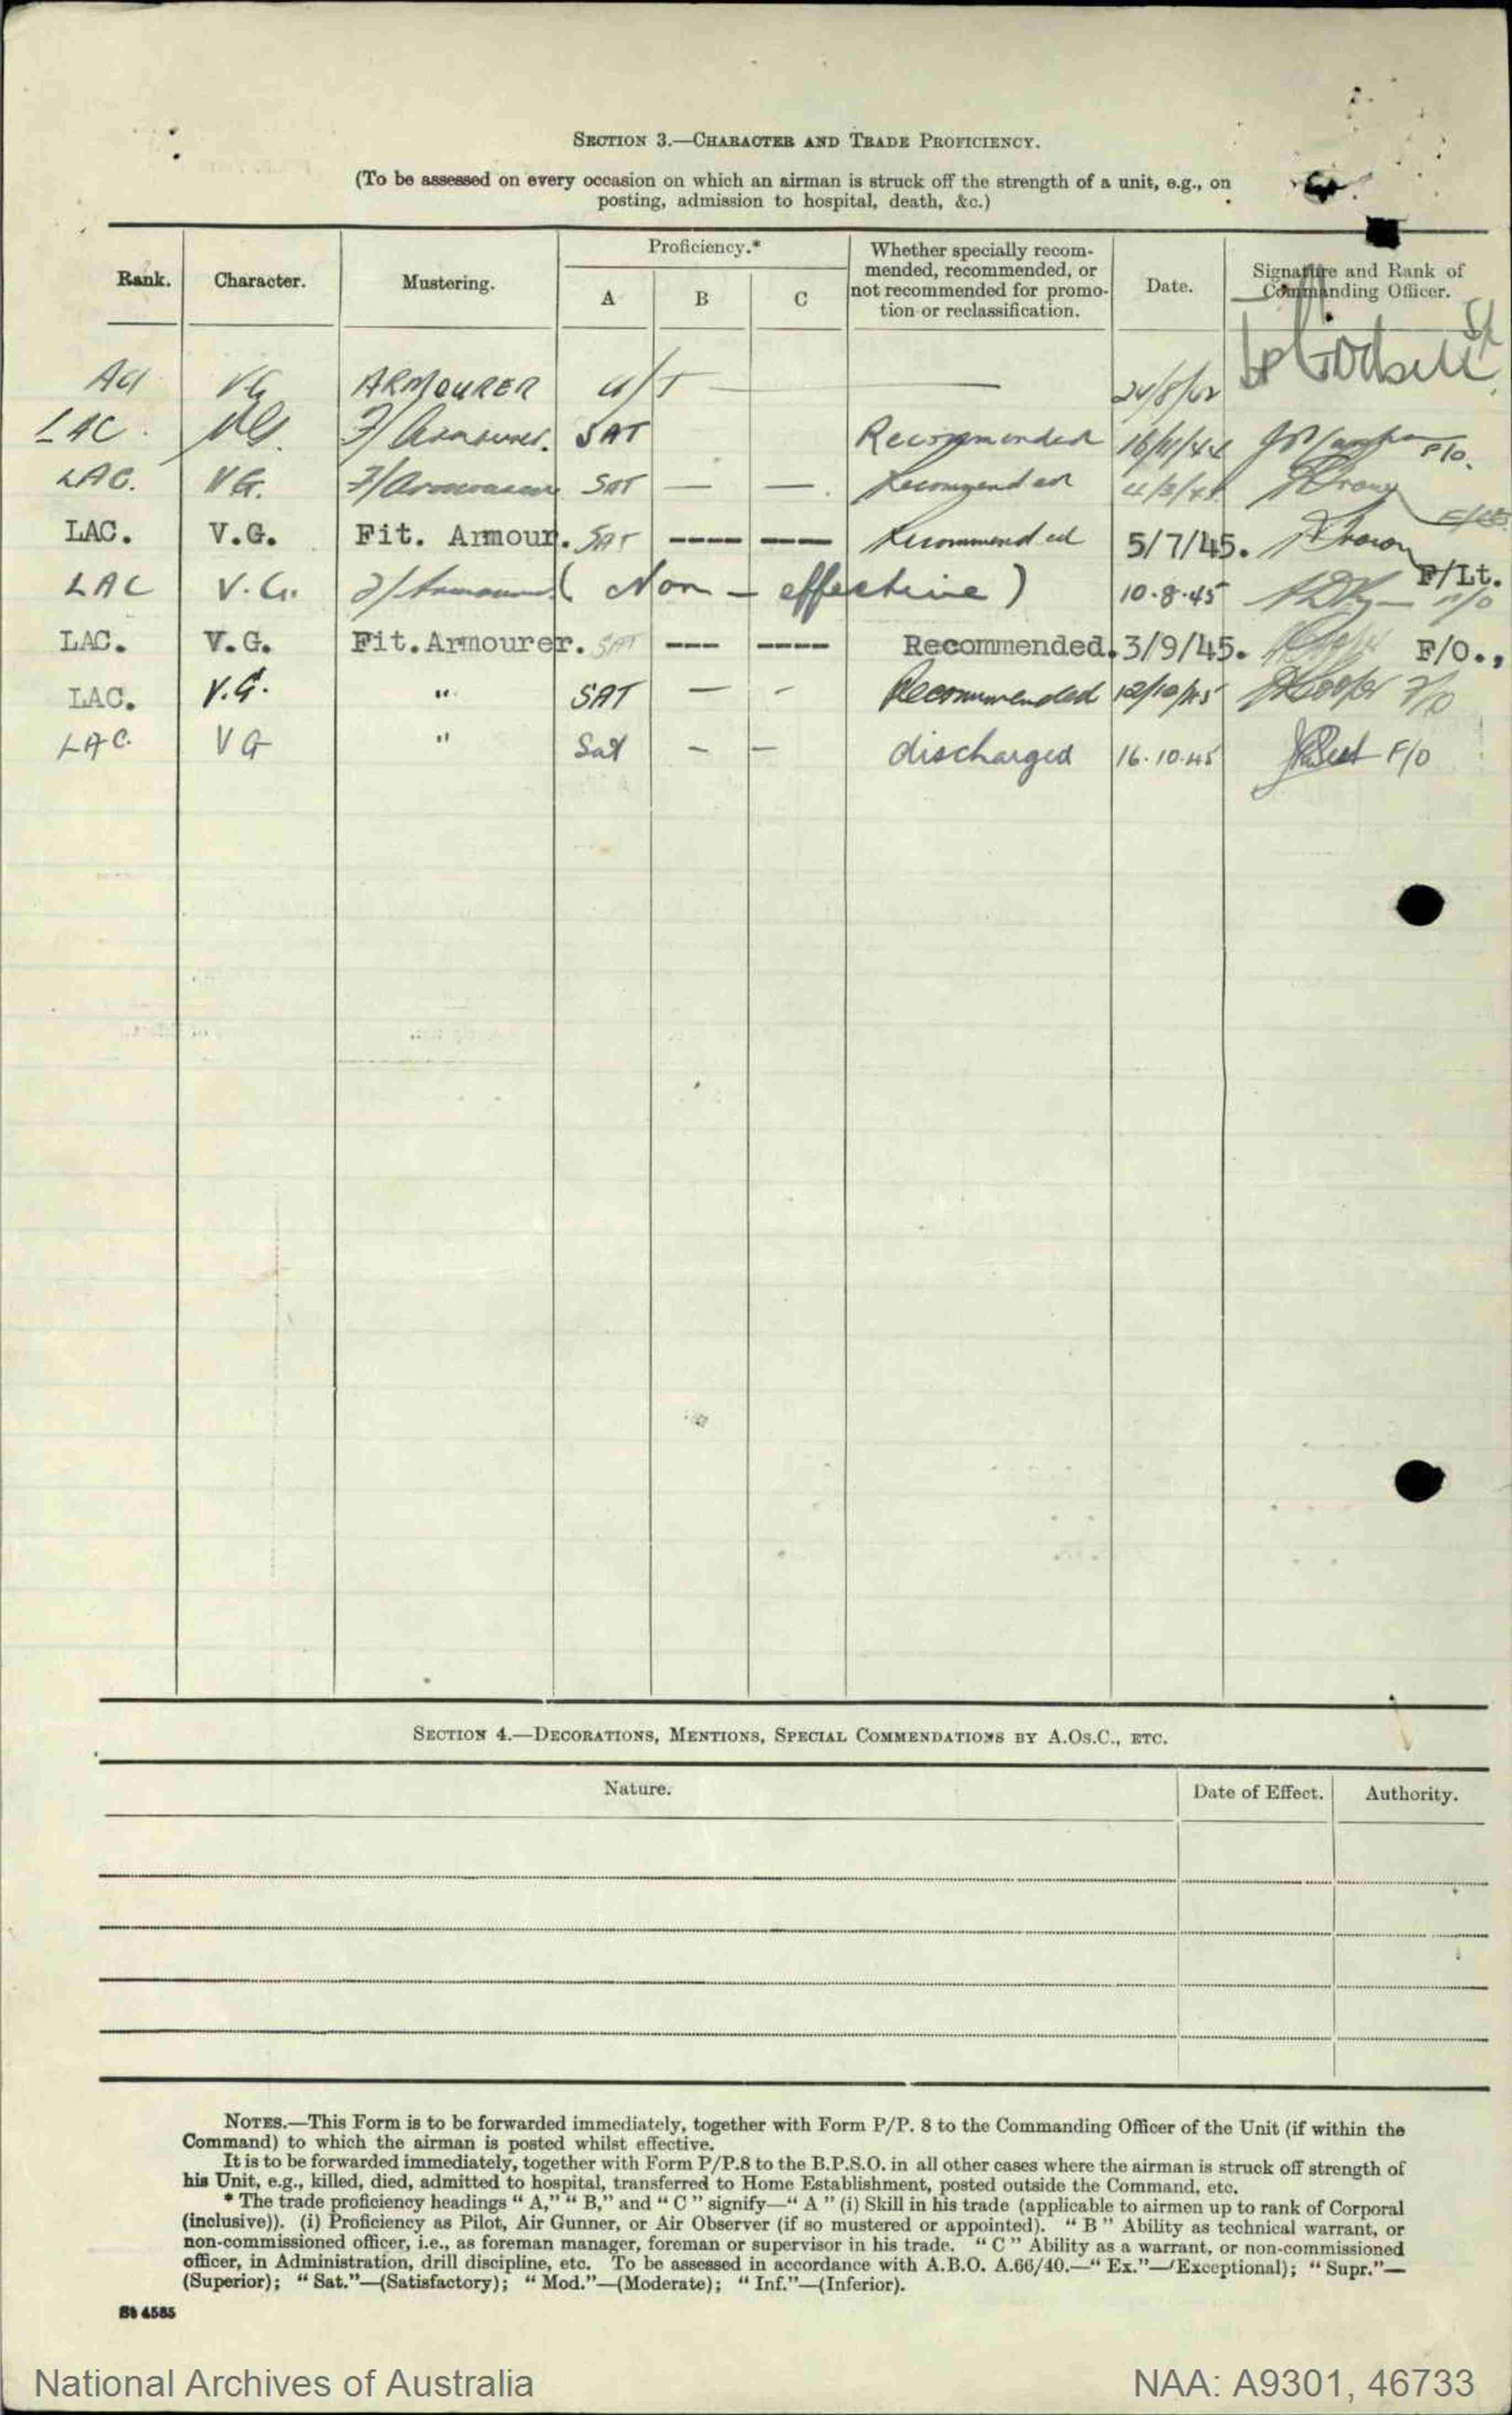 SECTION 3.—CHARACTER AND TRADE PROFICIENCY.
(To be assessed on every occasion on which an airman is struck off the strength of a unit, e.g., on
posting, admission to hospital, death, &c.)
Rank. Character. Mustering. Proficiency.* A B C Whether specially recom-
mended, recommended, or
not recommended for promo-
tion or reclassification. Date. Signature and Rank of
Commanding Officer.
VG ARMOURER U/T
LAC. F/Armourer. SAT Recommended 16/11/44 F/O.
LAC. VG. F/Armourer SAT — — Recommended
LAC. V.G. Fit. Armour. SAT ---- ---- Recommended 5/7/45. F/Lt.
LAC V.G. F/Armourer (Non - effective) 10.8.45
LAC. V.G. Fit.Armourer. SAT --- ---- Recommended. 3/9/45. F/O.,
LAC. V.G. " SAT — - Recommended 12/10/45 F/O
LAC. VG " Sat - — discharged 16.10.45 F/O
SECTION 4.—DECORATIONS, MENTIONS, SPECIAL COMMENDATIONS BY A.OS.C., ETC.
Nature. Date of Effect. Authority.
NOTES.—This Form is to be forwarded immediately, together with Form P/P. 8 to the Commanding Officer of the Unit (if within the
Command) to which the airman is posted whilst effective.
It is to be forwarded immediately, together with Form P/P.8 to the B.P.S.O. in all other cases where the airman is struck off strength of
his Unit, e.g., killed, died, admitted to hospital, transferred to Home Establishment, posted outside the Command, etc.
* The trade proficiency headings “ A,” “ B,” and “ C ” signify—“ A ” (i) Skill in his trade (applicable to airmen up to rank of Corporal
(inclusive)). (i) Proficiency as Pilot, Air Gunner, or Air Observer (if so mustered or appointed). “ B ” Ability as technical warrant, or
non-commissioned officer, i.e., as foreman manager, foreman or supervisor in his trade. “ C ” Ability as a warrant, or non-commissioned
officer, in Administration, drill discipline, etc. To be assessed in accordance with A.B.O. A.66/40.—“ Ex.”—(Exceptional); “ Supr.”—
(Superior); “ Sat.”—(Satisfactory); “ Mod.”—(Moderate); “ Inf.”—(Inferior).
St 4585
National Archives of Australia NAA: A9301, 46733